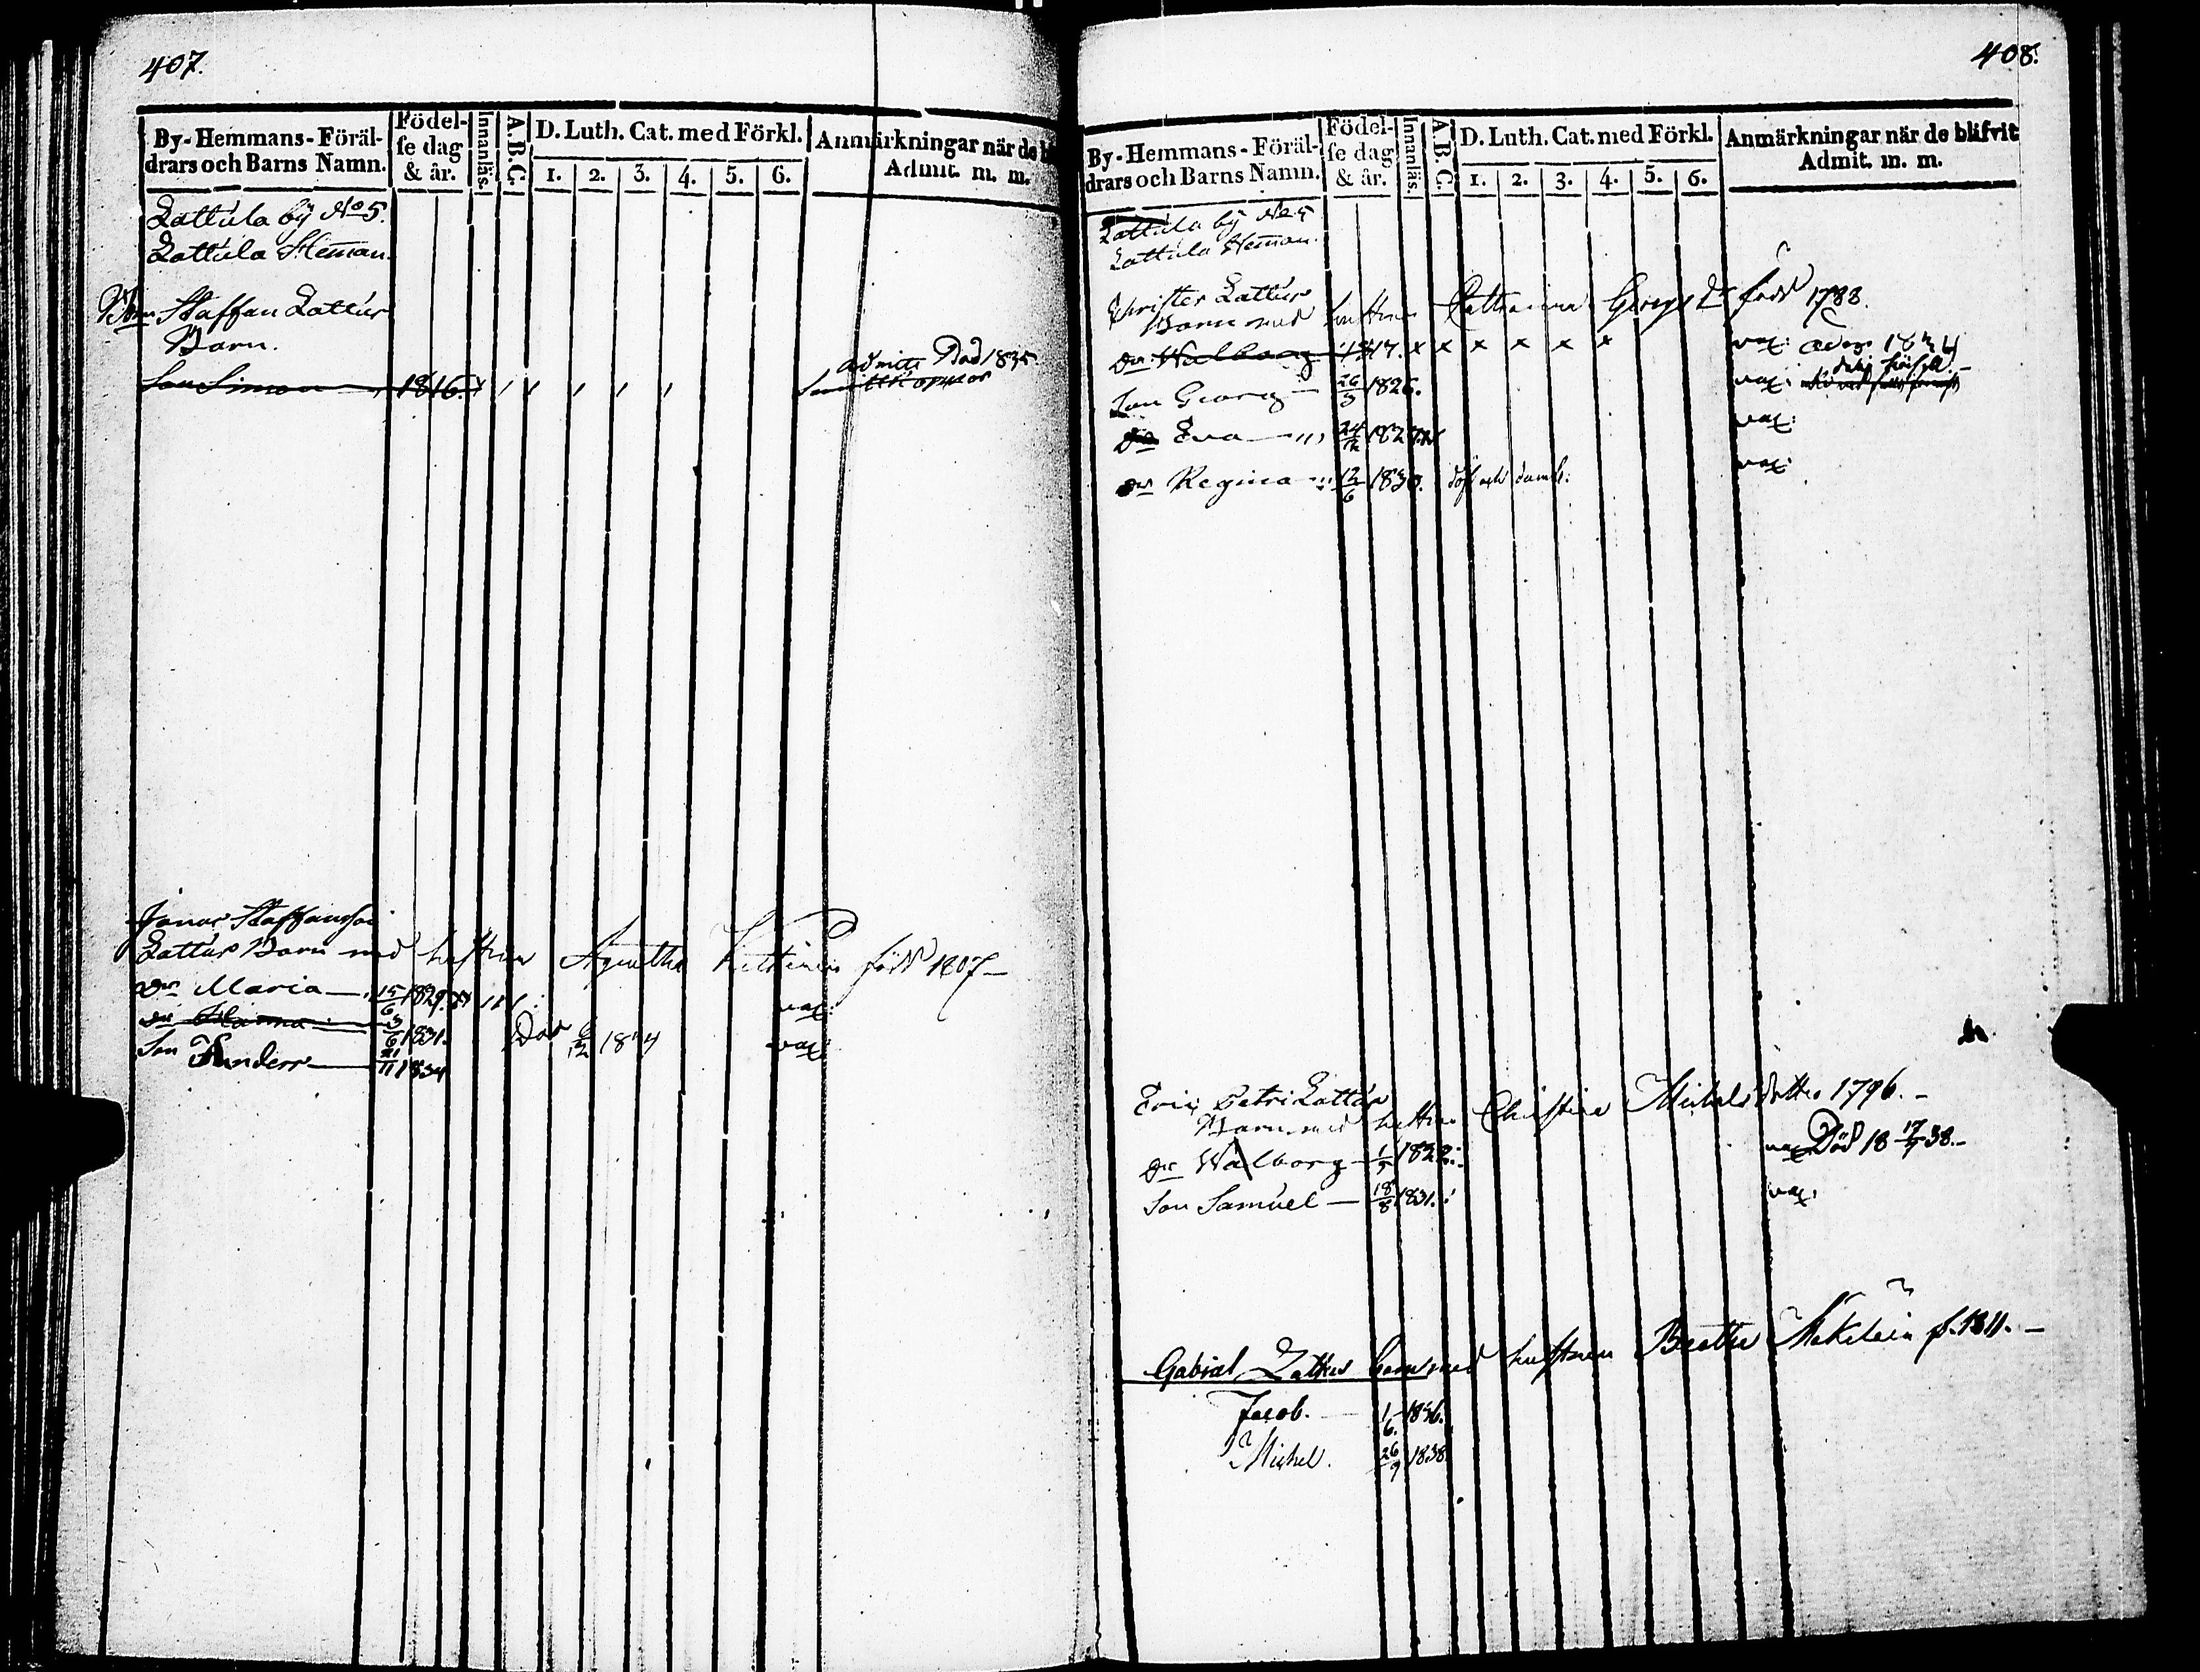 407.
By-Hemmans-Föräl-
drars och Barns Namn.
Födel-
se dag
& år.
Innanläs.
A.B.C.
D. Luth. Cat. med Förkl.
1. 2. 3. 4. 5. 6.
Anmärkningar när de
Admit. m. m.
Lattula by No 5.
Lattula Heman.
Staffan Lattus
Barn.
Son Simon 1816. admitt. Död 1835
Jonas Staffansson
Lattus Barn med hustrun Agnetha född 1807
Dr Maria 15/6 1829. vax.
Dr Hanna 3/6 1831. Död vax.
Son Anders 21/11 1834
408.
By-Hemmans-Föräl-
drars och Barns Namn.
Födel-
se dag
& år.
Innanläs.
A.B.C.
D. Luth. Cat. med Förkl.
1. 2. 3. 4. 5. 6.
Anmärkningar när de blifvit
Admit. m. m.
Lattula by No 5
Lattula Heman.
Christer Lattus
Barn med hustrun Catharina Georgs Dr född 1788.
Dr Walborg 1817. x x x x x x vax.
Son Georg 26/3 1826. vax.
Dr Eva 24/12 vax.
Dr Regina 12/6 1830. döf och dumb. vax.
Eric Petri Lattus
Barn med hustrun Christina Michelsdotter 1796.
Dr Walborg 1822. vax. Död 18 17/7 38.
Son Samuel 18/8 1831. vax.
Gabriel Lattus barn med hustrun Beatha f. 1811.
Jacob. 1/6 1836.
Michel. 26/9 1838